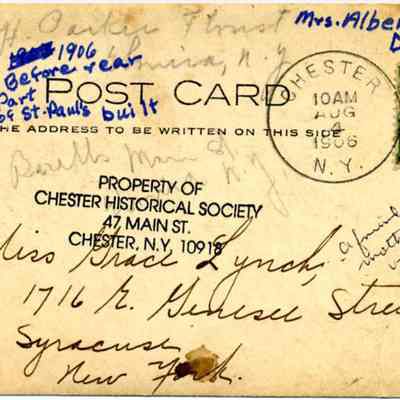 H. Parker Florist
Mrs. Alber
1906
Before rear
Part
of St. Paul's built
N.Y.
POST CARD
HE ADDRESS TO BE WRITTEN ON THIS SIDE
CHESTER
10 AM
AUG
4
1906
N.Y.
Main St
N.Y.
PROPERTY OF
CHESTER HISTORICAL SOCIETY
47 MAIN ST.
CHESTER, N.Y. 10918
Miss Grace Lynch,
1716 E. Genesee Stree
Syracuse
New York.